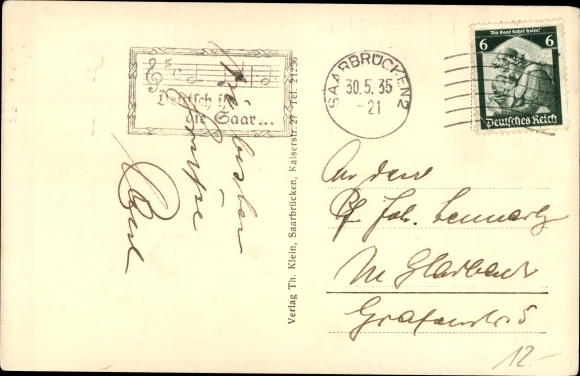 Deutsch ist
die Saar...
SAARBRÜCKEN 2
30.5.35
-21
Die Saar kehrt heim!
6 6
Deutsches Reich
Die besten
Grüsse
Verlag Th. Klein, Saarbrücken, Kaiserstr. 27 · Tel. 21256
An den
Joh. Lennartz
M Gladbach
12.-